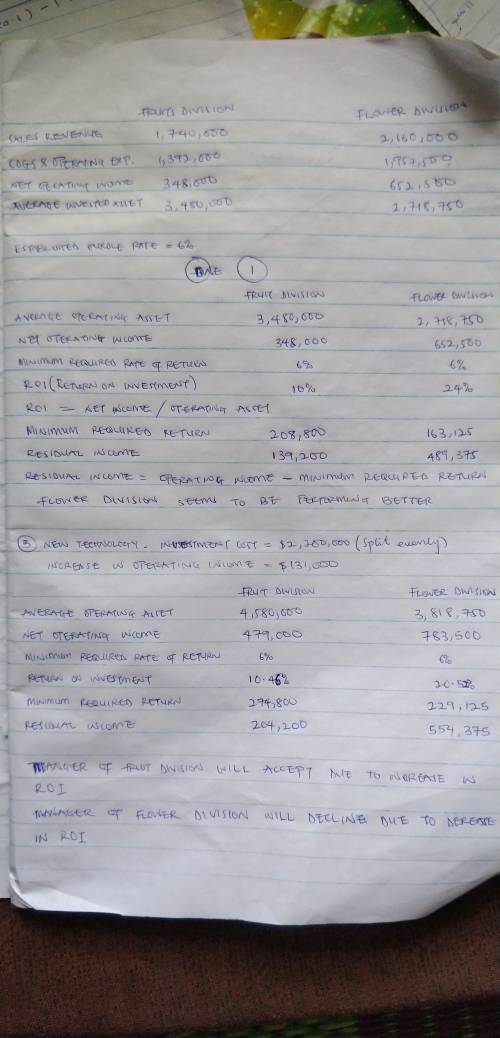 FRUITS DIVISION FLOWER DIVISION
SALES REVENUE 1,740,000 2,160,000
COGS & OPERATING EXP. 1,392,000 1,957,500
NET OPERATING INCOME 348,000 652,500
AVERAGE INVESTED ASSET 3,480,000 2,718,750
ESTABLISHED HURDLE RATE = 6%
1
FRUIT DIVISION FLOWER DIVISION
AVERAGE OPERATING ASSET 3,480,000 2,718,750
NET OPERATING INCOME 348,000 652,500
MINIMUM REQUIRED RATE OF RETURN 6% 6%
ROI (RETURN ON INVESTMENT) 10% 24%
ROI = NET INCOME / OPERATING ASSET
MINIMUM REQUIRED RETURN 208,800 163,125
RESIDUAL INCOME 139,200 489,375
RESIDUAL INCOME = OPERATING INCOME - MINIMUM REQUIRED RETURN
FLOWER DIVISION SEEMS TO BE PERFORMING BETTER
3 NEW TECHNOLOGY - INVESTMENT COST = $2,200,000 (Split evenly)
INCREASE IN OPERATING INCOME = $131,000
FRUIT DIVISION FLOWER DIVISION
AVERAGE OPERATING ASSET 4,580,000 3,818,750
NET OPERATING INCOME 479,000 783,500
MINIMUM REQUIRED RATE OF RETURN 6% 6%
RETURN ON INVESTMENT 10.46% 20.52%
MINIMUM REQUIRED RETURN 274,800 229,125
RESIDUAL INCOME 204,200 554,375
MANAGER OF FRUIT DIVISION WILL ACCEPT DUE TO INCREASE IN
ROI
MANAGER OF FLOWER DIVISION WILL DECLINE DUE TO DECREASE
IN ROI